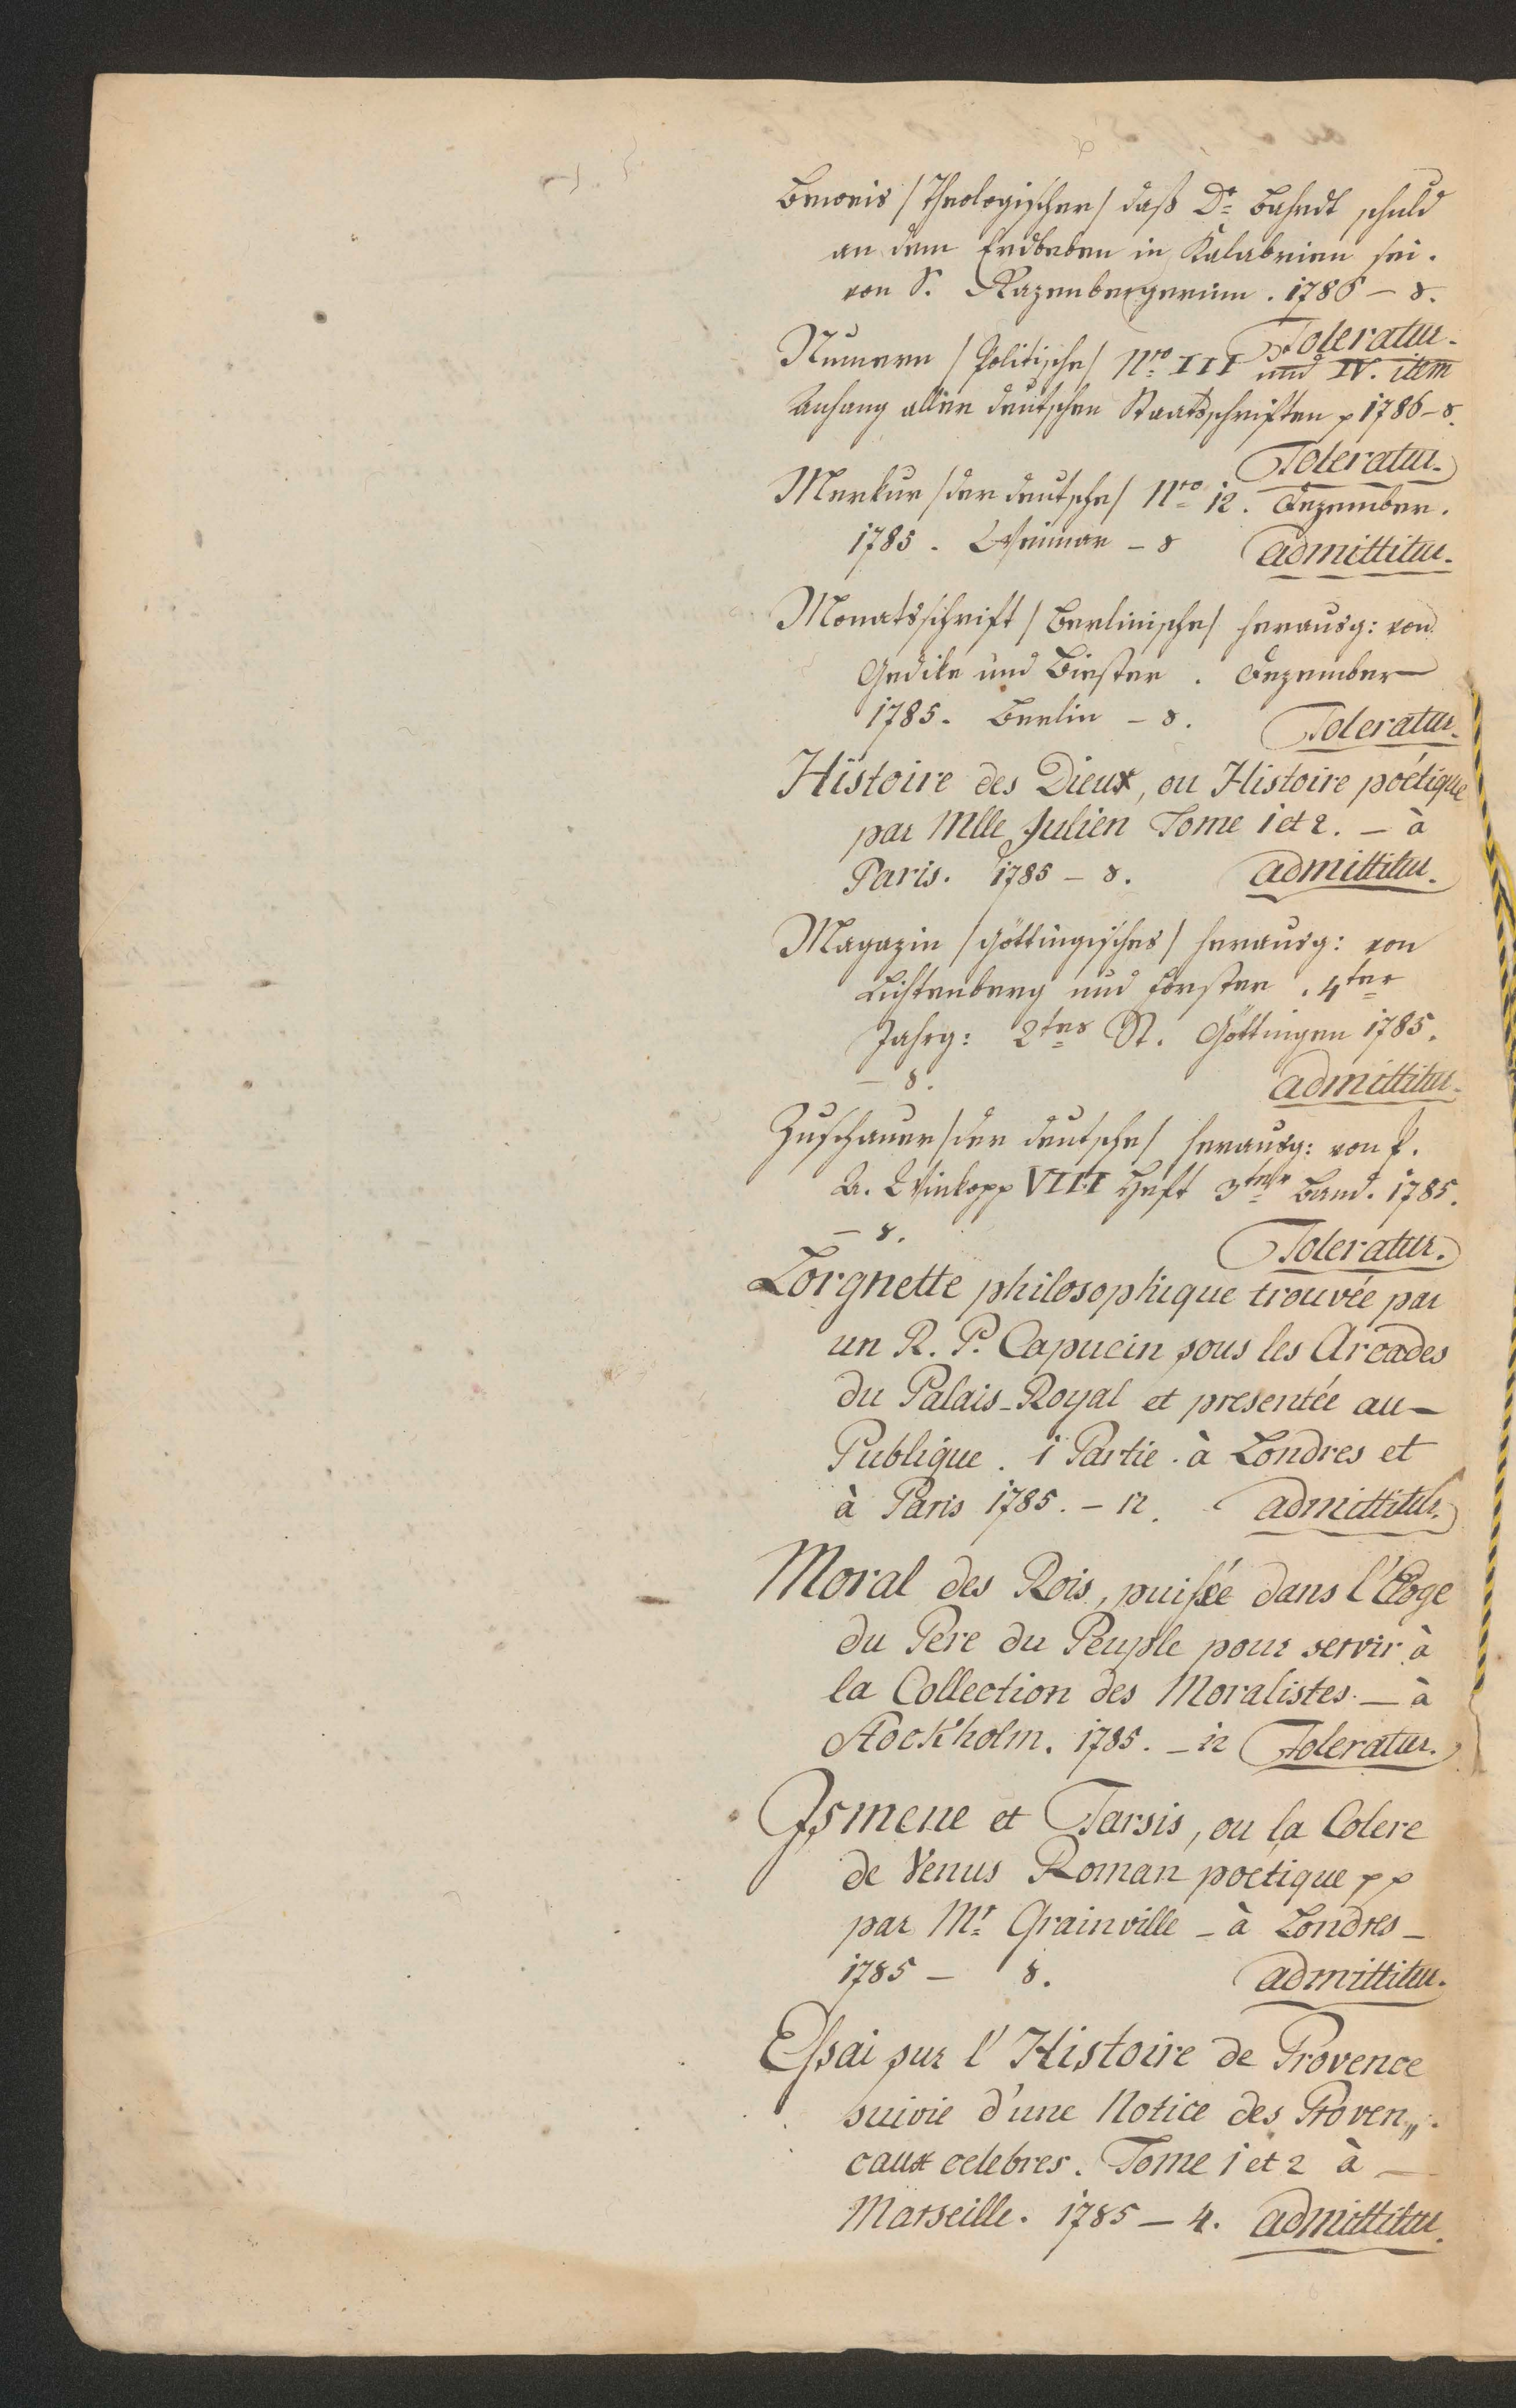 Beweis /Theologischer/ daß Dr Bahrdt schuld
an dem Erdbeben in Kalabrien sei.
von S. Razenbergerinn. 1786 – 8.
Toleratur.
Numern /Politische/ Nro III und IV. item
Anhang aller deutschen Staatsschriften p 1786 – 8.
Toleratur.
Merkur /der deutsche/ Nro 12. Dezember.
1785. Weimar – 8 admittitur.
Monatsschrift /Berlinische/ herausg: von
Gedike und Biester. Dezember
1785. Berlin – 8. Toleratur.
Histoire des Dieux, ou Histoire poétique
par Mlle Julien Tome 1 et 2. – à
Paris. 1785 – 8. admittitur.
Magazin /göttingisches/ herausg: von
Lichtenberg und Forster. 4ter
Jahrg: 2tes St. Göttingen 1785.
– 8. admittitur.
Zuschauer /der deutsche/ herausg: von P.
A. Winkopp VIII Heft 3ter Band. 1785.
– 8. Toleratur.
Lorgnette philosophique trouvée par
un R. P. Capucin sous les Arcades
du Palais-Royal et presentée au –
Publique. 1 Partie. à Londres et
à Paris 1785. – 12. admittitur.
Moral des Rois, puisée dans l'Eloge
du Pere du Peuple pour servir à
la Collection des Moralistes. – à
Stockholm. 1785. – 12 Toleratur.
Ismene et Tarsis, ou la Colere
de Venus Roman poetique pp
par Mr Grainville – à Londres –
1785 – 8. admittitur.
Essai sur l'Histoire de Provence
suivie d'une Notice des Proven„
caux celebres. Tome 1 et 2 à –
Marseille. 1785 – 4. admittitur.